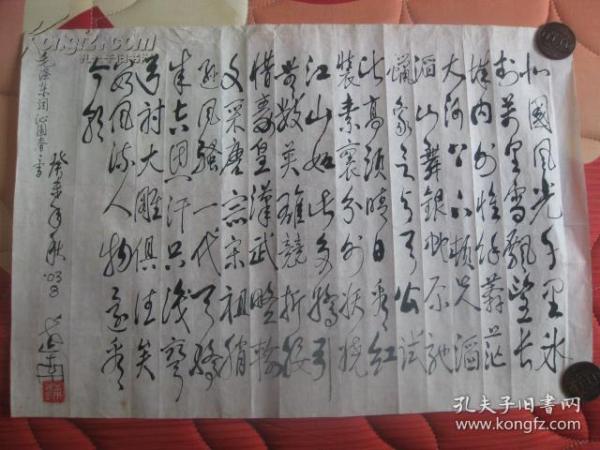 北國風光千里冰
封萬里雪飄望長
城内外惟餘莽茫
大河上下頓失滔
滔山舞銀蛇原馳
蠟象欲与天公試
比高須晴日看紅
裝素裹分外妖嬈
江山如此多嬌引
無數英雄競折腰
惜秦皇漢武略輸
文采唐宗宋祖稍
遜風騷一代天驕
成吉思汗只識彎
弓射大雕俱往矣
數風流人物還看
今朝
毛澤東詞沁園春雪
癸未年秋
'03
8
孔夫子旧书网
www.kongfz.com
孔夫子旧书网
www.kongfz.com